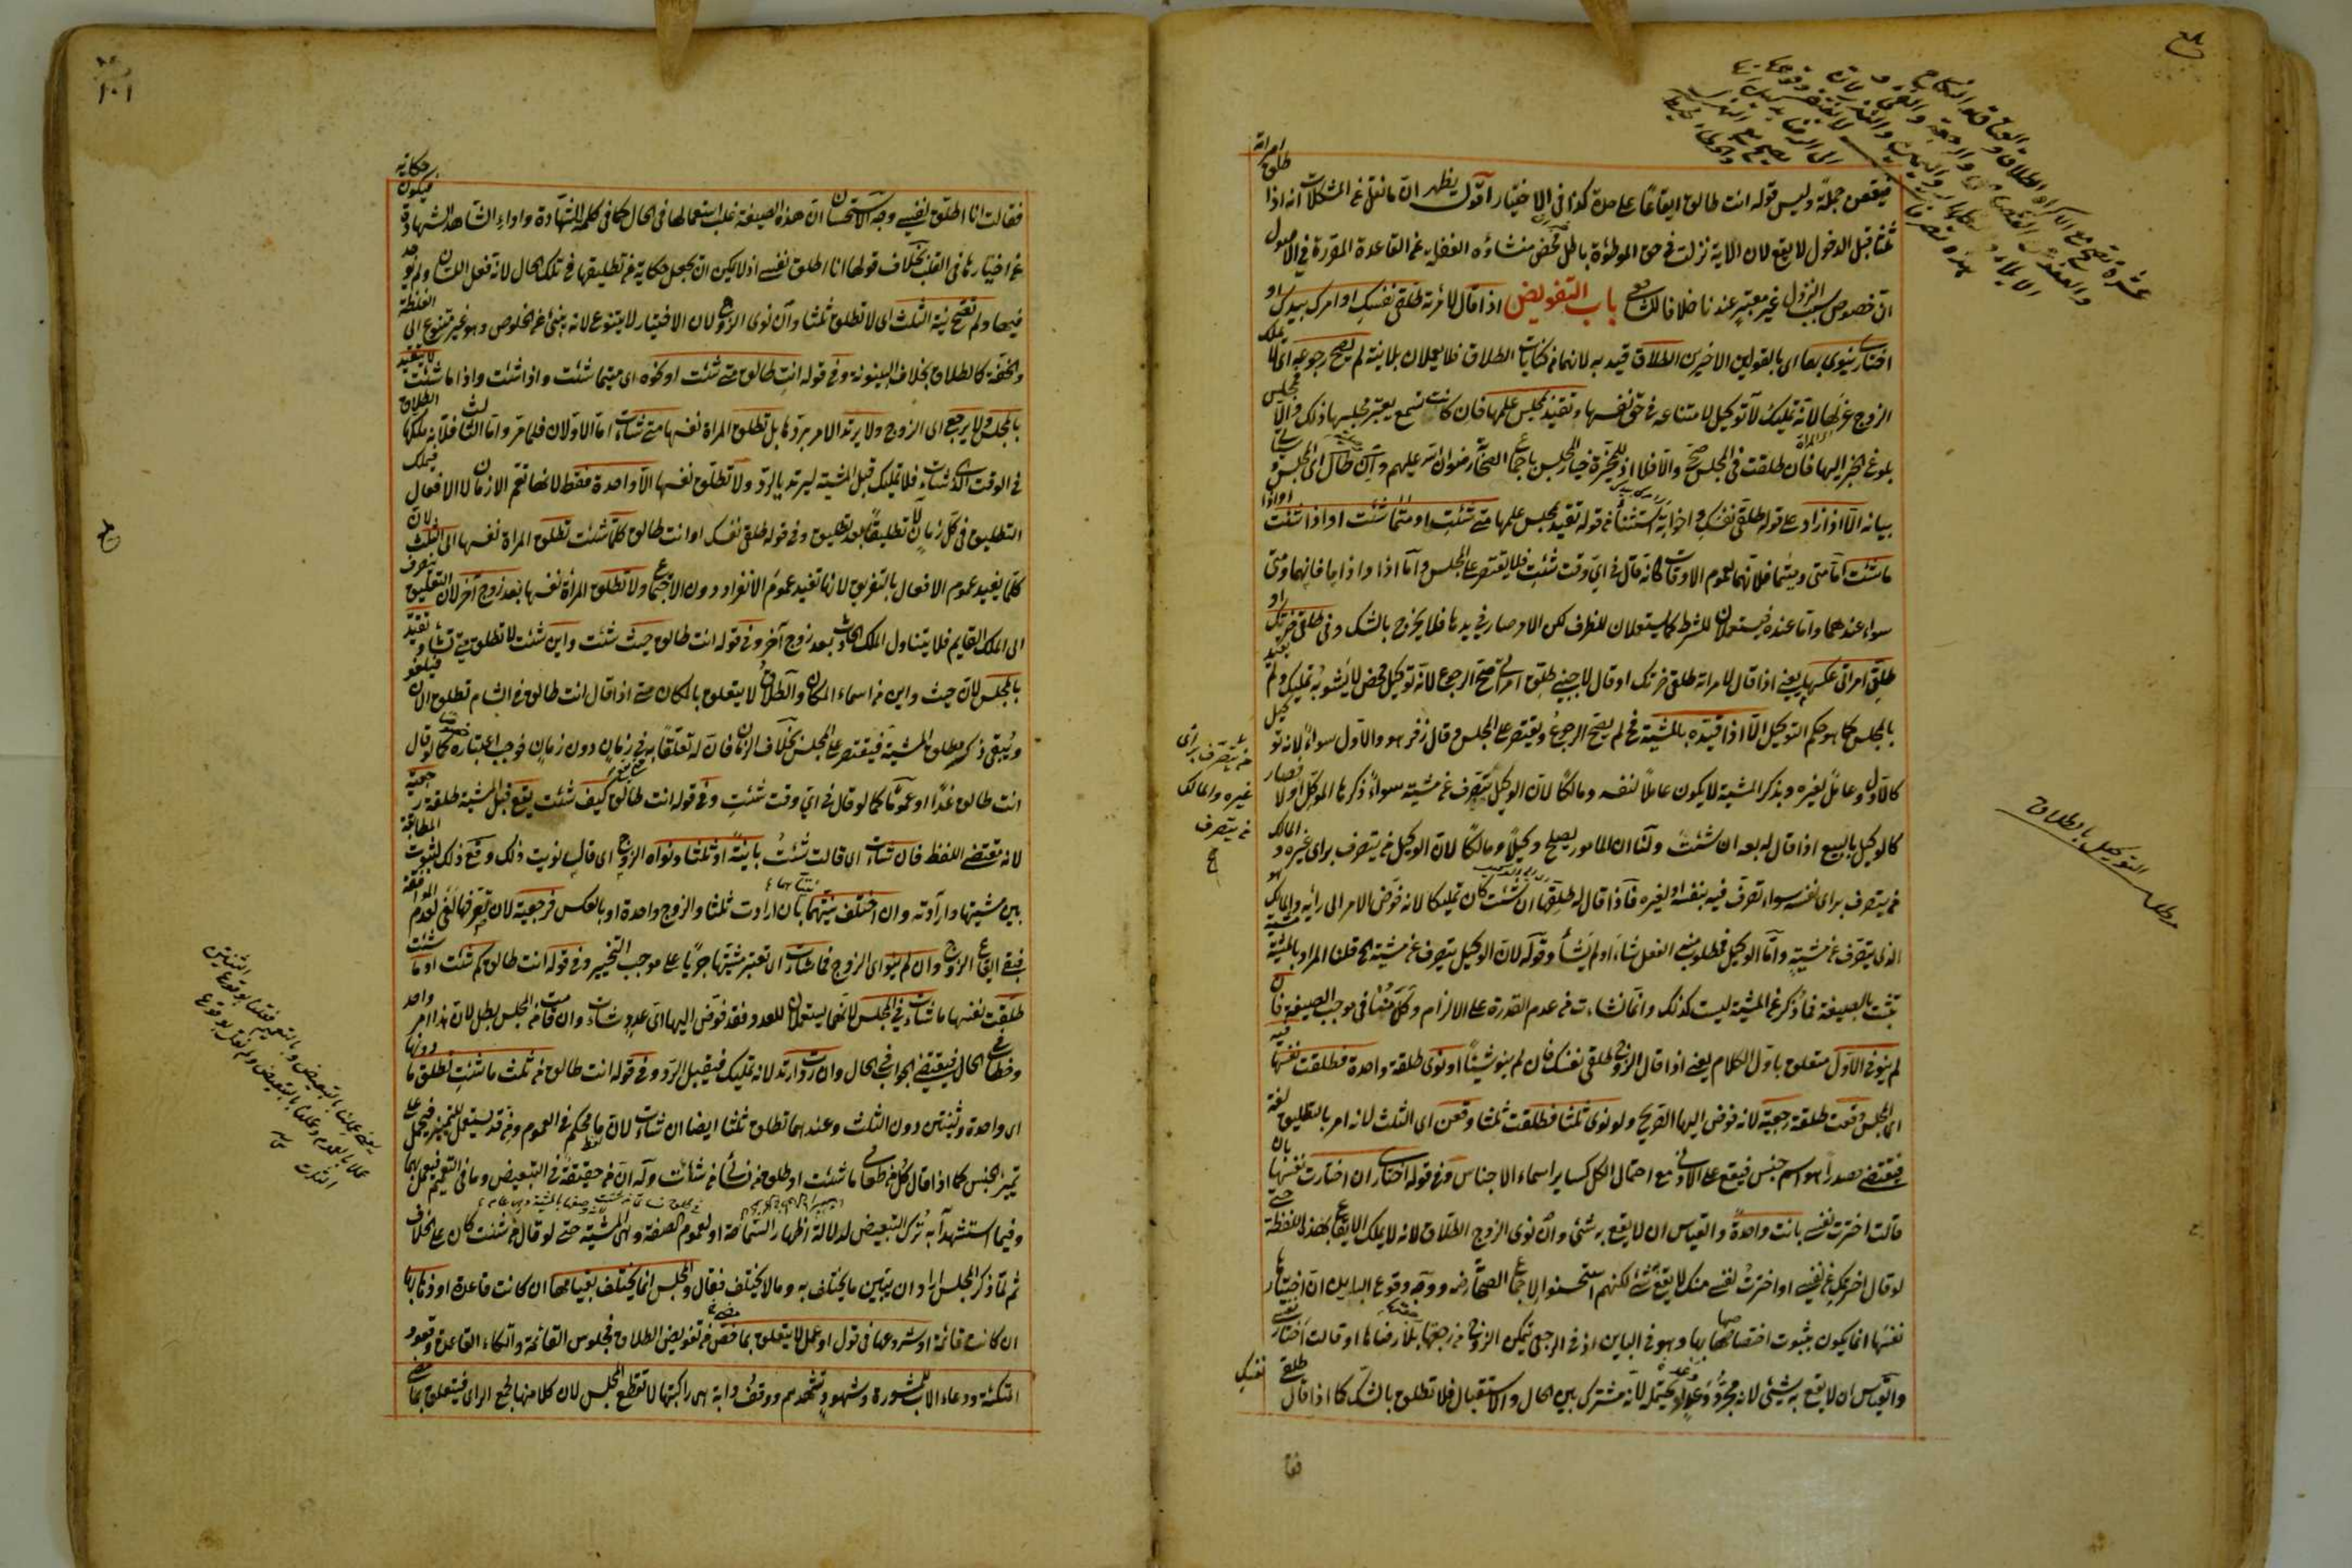 فيقعن جملة وليس قوله انت طالق ايقاعًا على حدة كذا في الاختيار اقول يظهر ان ما نقل عن المشكلات انه اذا طلق امراته
ثلثا قبل الدخول لا يقع لان الاية نزلت في حق الموطوءة باطل محض منشاؤه الغفلة عن القاعدة المقررة في الاصول
ان خصوص سبب النزول غير معتبر عندنا خلافا للشافعي باب التفويض اذا قال لامرأته طلقي نفسك او امرك بيدك او
اختاري ينوي بهما اي بالقولين الاخيرين الطلاق قيد به لانهما من كنايات الطلاق فلا يعملان بلا نية لم يصح رجوعه اي لا يملك
الزوج عزلها لانه تمليك لا توكيل لامتناعه في حق نفسها وتقيد بمجلس علمها فان كانت تسمع يعتبر مجلسها ذلك والا فمجلس
بلوغ الخبر اليها فان طلقت في المجلس صح والا فلا اذ للمخيرة خيار المجلس باجماع الصحابة رضوان الله عليهم وان طال اي المجلس
بيانه الا اذا زاد على قوله طلقي نفسك واخواته استثناء من قوله تقيد بمجلس علمها متى شئت او متى ما شئت او اذا شئت او اذا
ما شئت اما متى ومتى ما فلانهما لعموم الاوقات كانه قال في اي وقت شئت فلا يقتصر على المجلس واما اذا واذا ما فانهما ومتى
سواء عندهما واما عنده فيستعملان للشرط كما يستعملان للظرف لكن الامر صار في يدها فلا يخرج بالشك وفي طلقي ضرتك او
طلق امراتي عكسهما يعني اذا قال لامراته طلقي ضرتك او قال لاجنبي طلق امراتي صح الرجوع لانه توكيل محض لا يشوبه تمليك ولم يقيد
بالمجلس كما هو حكم التوكيل الا اذا قيده بالمشية فح لم يصح الرجوع ويقتصر على المجلس وقال زفر هو والاول سواء لانه توكيل
كالاول وعامل لغيره وبذكر المشية لا يكون عاملا لنفسه ومالكًا لان الوكيل يتصرف عن مشية سواء ذكرها الموكل او لا فصار
كالوكيل بالبيع اذا قال له بعه ان شئت ولنا ان المامور يصلح وكيلا ومالكًا لان الوكيل من يتصرف براي غيره والمالك
من يتصرف براي نفسه سواء تصرف فيه بنفسه او لغيره فاذا قال له طلقها ان شئت كان تمليكا لانه فوض الامر الى رأيه والمالك هو
الذي يتصرف عن مشيته واما الوكيل فمطلوب منه الفعل شاء او لم يشأ وقوله لان الوكيل يتصرف عن مشية الخ قلنا المراد بالمشية مشية
تثبت بالصيغة فما ذكر من المشية ليست كذلك وانما نشأت من عدم القدرة على الالزام وكلامنا في موجب الصيغة فان
لم ينو في الاول متعلق باول الكلام يعني اذا قال الزوج طلقي نفسك فان لم ينو شيئًا او نوى طلقة واحدة فطلقت نفسها فيه
اي المجلس وقعت طلقة رجعية لانه فوض اليها الصريح ولو نوى ثلثا فطلقت ثلثا وقعن اي الثلث لانه امر بالتطليق لغة
فيقتضي مصدرا هو اسم جنس فيقع على الادنى مع احتمال الكل كسائر اسماء الاجناس وفي قوله اختاري ان اختارت نفسها بان
قالت اخترت نفسي بانت واحدة والقياس ان لا يقع به شئ وان نوى الزوج الطلاق لانه لا يملك الايقاع بهذه اللفظة حتى
لو قال اخترتك من نفسي او اخترت نفسي منك لا يقع شئ لكنهم استحسنوا لاجماع الصحابة رضه ووجه وقوع الباين ان اختيارها
نفسها انما يكون بثبوت اختصاصها بها وهو في الباين اذ في الرجعي يتمكن الزوج من رجعتها بلا رضاها او قالت اختار نفسي
والقياس ان لا يقع به شئ لانه مجرد وعد او يحتمله لانه مشترك بين الحال والاستقبال فلا تطلق بالشك كما اذا قال طلقي نفسك
من يتصرف براى
غيره والمالك
من يتصرف
مطلب التوكيل بالطلاق
١٠١
فقالت انا اطلق نفسي وجه الاستحسان ان هذه الصيغة غلب استعمالها في الحال كما في كلمة الشهادة واداء الشاهد الشهادة فيكون حكاية
عن اختيارها في القلب بخلاف قولها انا اطلق نفسي اذ لا يمكن ان يجعل حكاية عن تطليقها في تلك الحال لانه فعل اللسان ولم يوجد
فيها ولم تصح نية الثلث اي لا تطلق ثلثا وان نوى الزوج لان الاختيار لا يتنوع لانه ينبئ عن الخلوص وهو غير متنوع الى الغلظة
والخفة كالطلاق بخلاف البينونة وفي قوله انت طالق متى شئت او نحوه اي متى ما شئت واذا شئت واذا ما شئت لا يتقيد
بالمجلس ولا يرجع اي الزوج ولا يرتد الامر بردها بل تطلق المراة نفسها متى شاءت اما الاولان فلما مر واما الثالث فلانه ملكها الطلاق
في الوقت الذي شاءت فلا تمليك قبل المشية ليرتد بالرد ولا تطلق نفسها الا واحدة فقط لانها تعم الازمان لا الافعال فيملك
التطليق في كل زمان لا تطليقًا بعد تطليق وفي قوله طلقي نفسك او انت طالق كلما شئت تطلق المراة نفسها الى الثلث لان
كلما يفيد عموم الافعال بالتفريق لانها تفيد عموم الانفراد دون الاجتماع ولا تطلق المرأة نفسها بعد زوج آخر لان التعليق ينصرف
الى الملك القايم فلا يتناول الملك الحادث بعد زوج آخر وفي قوله انت طالق حيث شئت واين شئت لا تطلق حتى تشاء وتقيد
بالمجلس لان حيث واين من اسماء المكان والطلاق لا يتعلق بالمكان حتى اذا قال انت طالق في الشام تطلق الان فيلغو
ويبقى ذكر مطلق المشية فيقتصر على المجلس بخلاف الزمان فان له تعلقا به في زمان دون زمان فوجب اعتباره خصوصا كما لو قال
انت طالق غدًا او عمومًا كما لو قال في اي وقت شئت وفي قوله انت طالق كيف شئت يقع قبل المشية طلقة رجعية
لانه مقتضى اللفظ فان شاءت اي قالت شئت باينة او ثلثا ونواه الزوج اي قال نويت ذلك وقع ذلك لثبوت المطابقة
بين مشيتها وارادته وان اختلف نيتهما بان ارادت ثلثا والزوج واحدة او بالعكس فرجعية لان تصرفها لغى لعدم الموافقة
فبقي ايقاع الزوج وان لم ينو اي الزوج فما شاءت اي تعتبر مشيتها جريًا على موجب التخيير وفي قوله انت طالق كم شئت او ما شئت
طلقت نفسها ما شاءت في المجلس لانهما يستعملان للعدد فقد فوض اليها اي عدد شاءت وان قامت من المجلس بطل لان هذا امر واحد
وخطاب في الحال فيقتضي الجواب في الحال وان ردت ارتد لانه تمليك فيقبل الرد وفي قوله انت طالق من ثلث ما شئت تطلق ما دونها
اي واحدة وثنتين دون الثلث وعندهما تطلق ثلثا ايضا ان شاءت لان ما محكم في العموم ومن قد يستعمل للتمييز فيحمل على
تمييز الجنس كما اذا قال كل من طعامي ما شئت او طلق من نسائي من شاءت وله ان من حقيقة في التبعيض وما في التعميم فيعمل بهما
وفيما استشهدا به ترك التبعيض لدلالة اظهار السماحة او لعموم الصفة وهي المشية حتى لو قال من شئت كان على الخلاف
ثم لما ذكر المجلس اراد ان يبين ما يختلف به وما لا يختلف فقال والمجلس انما يختلف بقيامها ان كانت قاعدة او ذهابها
ان كانت قائمة او شروعها في قول او عمل لا يتعلق بما مضى من تفويض الطلاق فجلوس القائمة واتكاء القاعدة وقعود
المتكئة ودعاء الاب للمشورة وشهود تشهدهم ووقف دابة هي راكبتها لا تقطع المجلس لان كلا منها لجمع الراي فيتعلق بما مضى